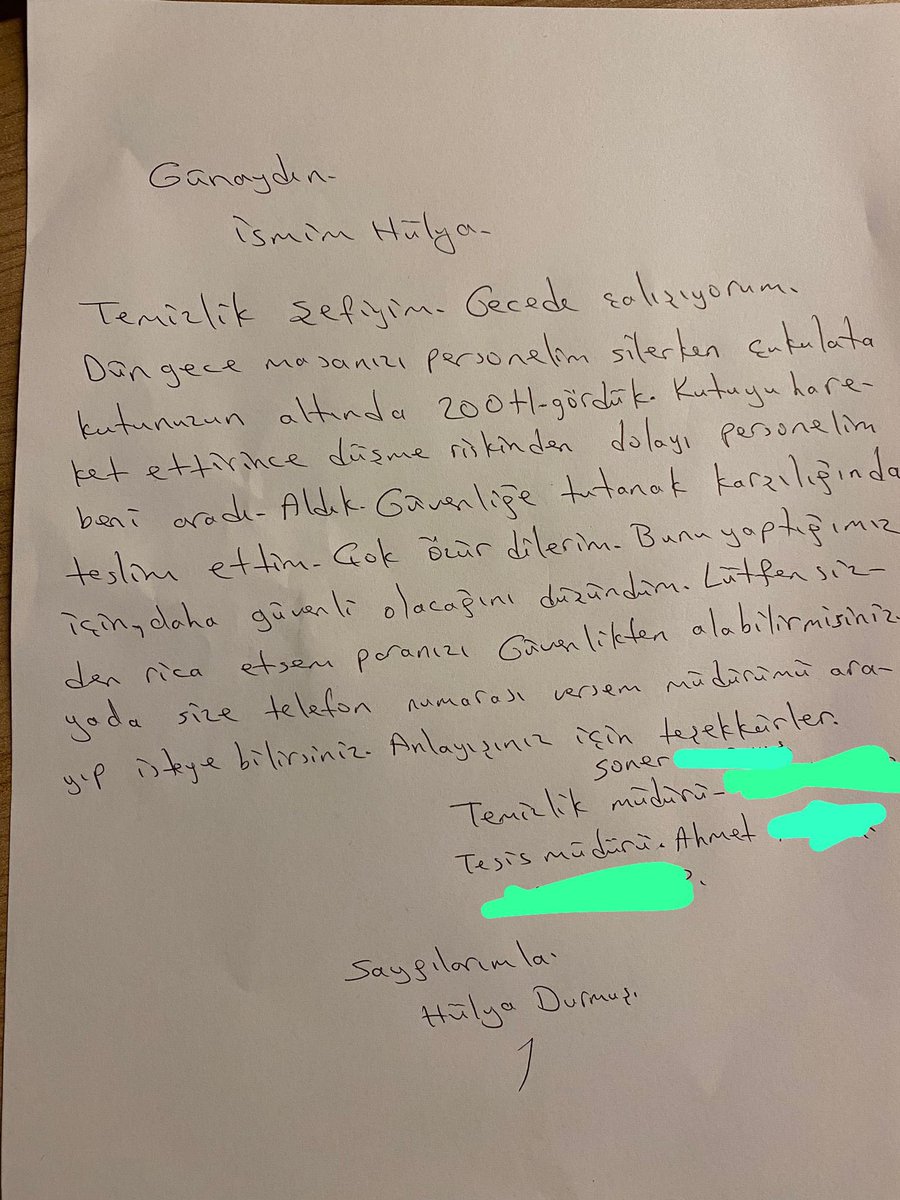 Günaydın-
İsmim Hülya-
Temizlik şefiyim- Gecede çalışıyorum.
Dün gece masanızı personelim silerken çukulata
kutunuzun altında 200tl-gördük. Kutuyu hare-
ket ettirince düşme riskinden dolayı personelim
beni aradı- Aldık- Güvenliğe tutanak karşılığında
teslim ettim- Çok özür dilerim- Bunu yaptığımız
için, daha güvenli olacağını düşündüm. Lütfen siz-
den rica etsem paranızı Güvenlikten alabilirmisiniz.
yada size telefon numarası versem müdürümü ara-
yıp isteye bilirsiniz. Anlayışınız için teşekkürler.
Soner
Temizlik müdürü-
Tesis müdürü. Ahmet
Saygılarımla.
Hülya Durmuş.